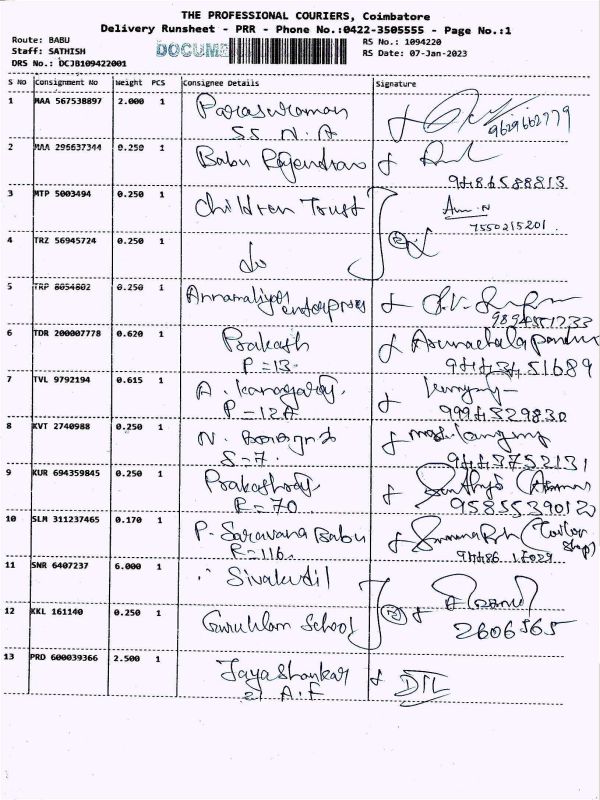 THE PROFESSIONAL COURIERS, Coimbatore
Delivery Runsheet - PRR - Phone No.:0422-3505555 - Page No.:1
Route: BABU
Staff: SATHISH
DRS No.: DCJB109422001
DOCUME
RS No.: 1094220
RS Date: 07-Jan-2023
S No Consignment No Weight PCS Consignee Details Signature
1 MAA 567538897 2.000 1 Parasuraman
SS N. A
9629662779
2 MAA 296637344 0.250 1 Babu Rajendran
9486588813
3 MTP 5003494 0.250 1 Children Trust
7550215201
4 TRZ 56945724 0.250 1 do
5 TRP 8054802 0.250 1 Annamaliyar enterprises
6 TDR 200007778 0.620 1 Prakash Arunachala
P = 13
9444351689
7 TVL 9792194 0.615 1 A. Kanagaraj
P = 12A
9994329830
8 KVT 2740988 0.250 1 N.
S-7.
9443752131
9 KUR 694359845 0.250 1 Prakashraj
R = 70
9585539012
10 SLM 311237465 0.170 1 P. Saravana Babu (Tailor Shop)
R = 116.
11 SNR 6407237 6.000 1 Sivakutil
12 KKL 161140 0.250 1 Gurukulam School
2606565
13 PRD 600039366 2.500 1 Jayashankar
21 A.F